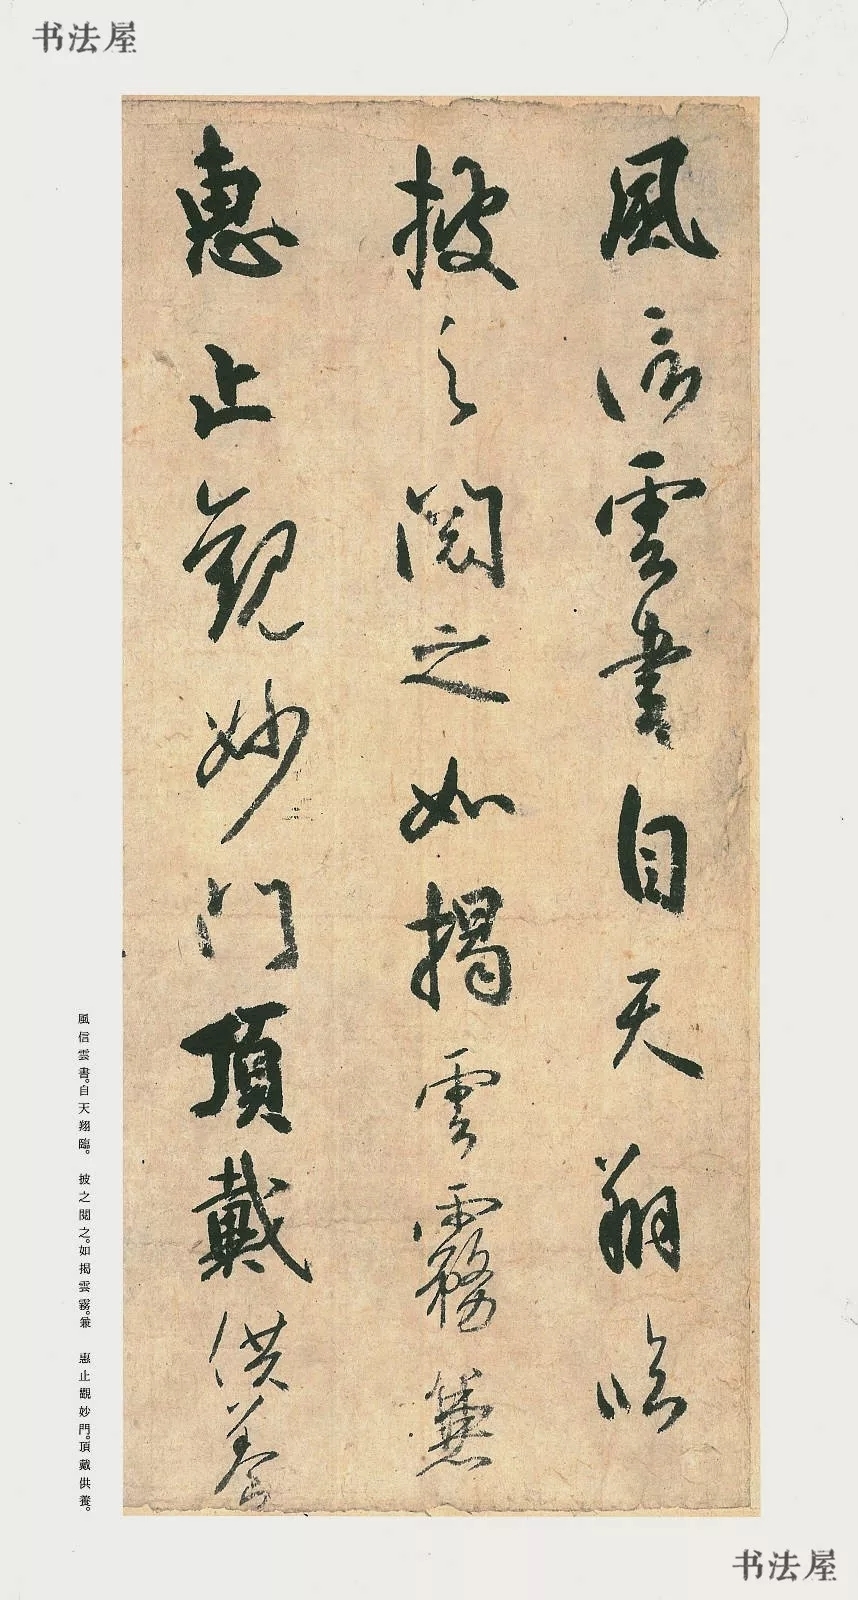 书法屋
風信雲書自天翔臨
披之閱之如揭雲霧兼
惠止觀妙門頂戴供養
風信雲書。自天翔臨。　披之閱之。如揭雲霧。兼　惠止觀妙門。頂戴供養。
书法屋